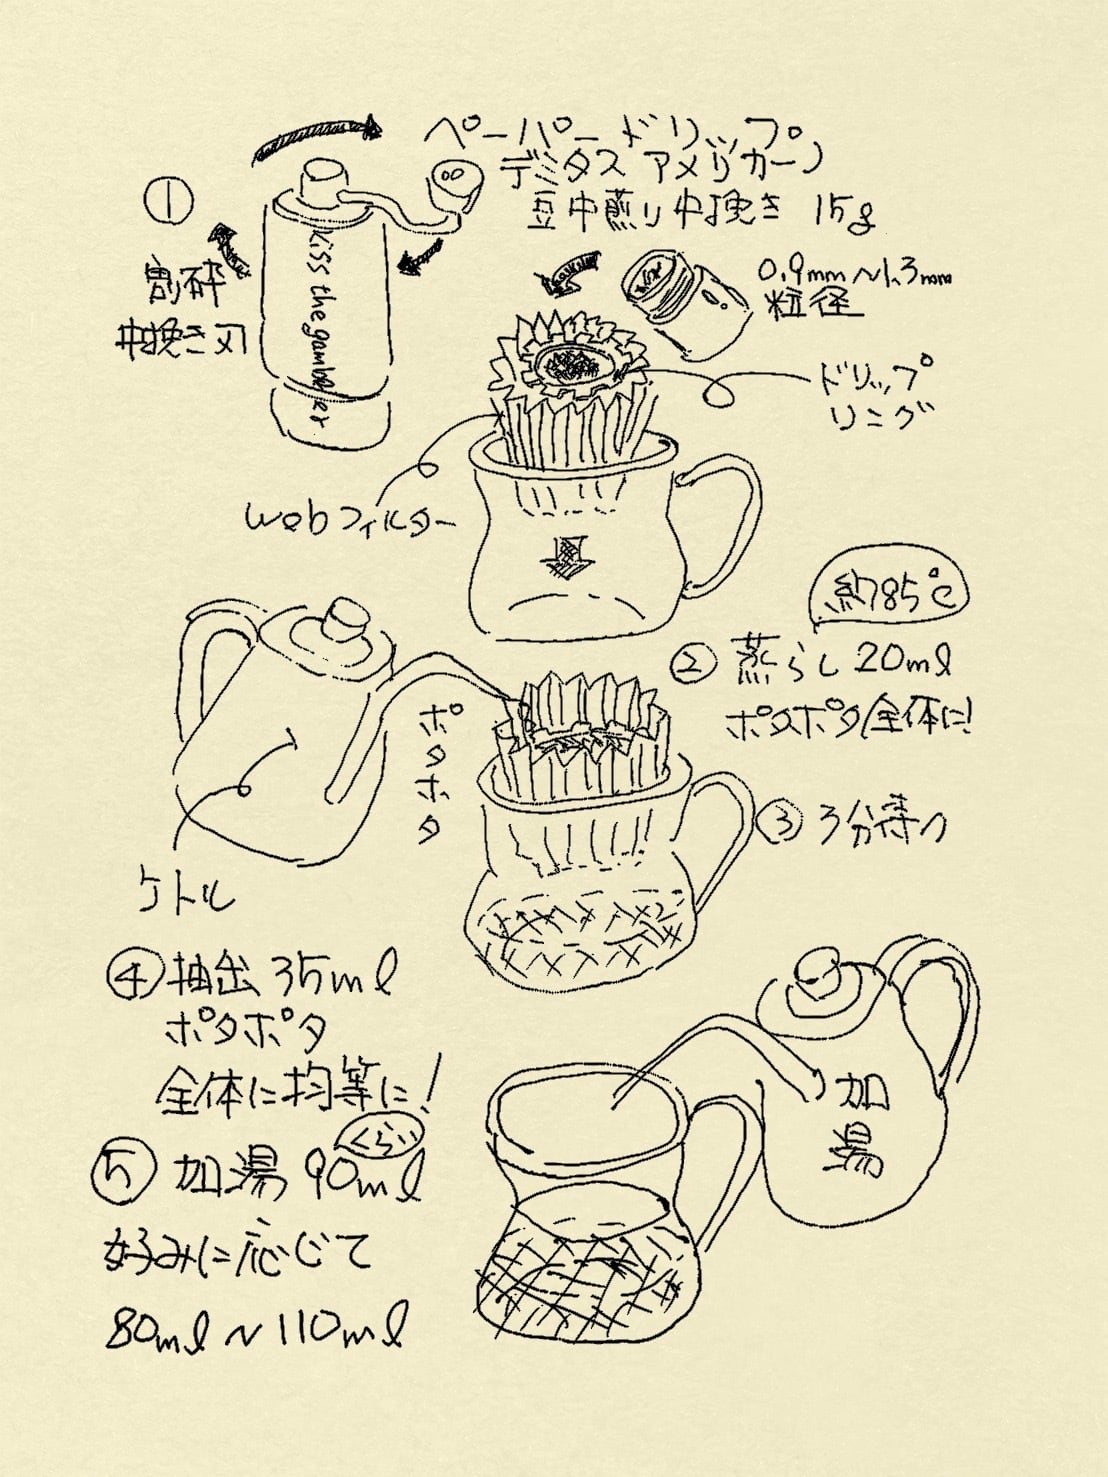 ペーパードリップ
デミタス アメリカーノ
豆中煎り中挽き 15g
①
割砕
中挽き刃
Kiss the gambojer
0.9mm~1.3mm
粒径
ドリップ
リング
webフィルター
約85℃
② 蒸らし 20ml
ポタポタ全体に!
ポタポタ
③ 3分待つ
ケトル
④抽出 35ml
ポタポタ
全体に均等に!
⑤ 加湯 90ml
くらい
好みに応じて
80ml~110ml
加湯